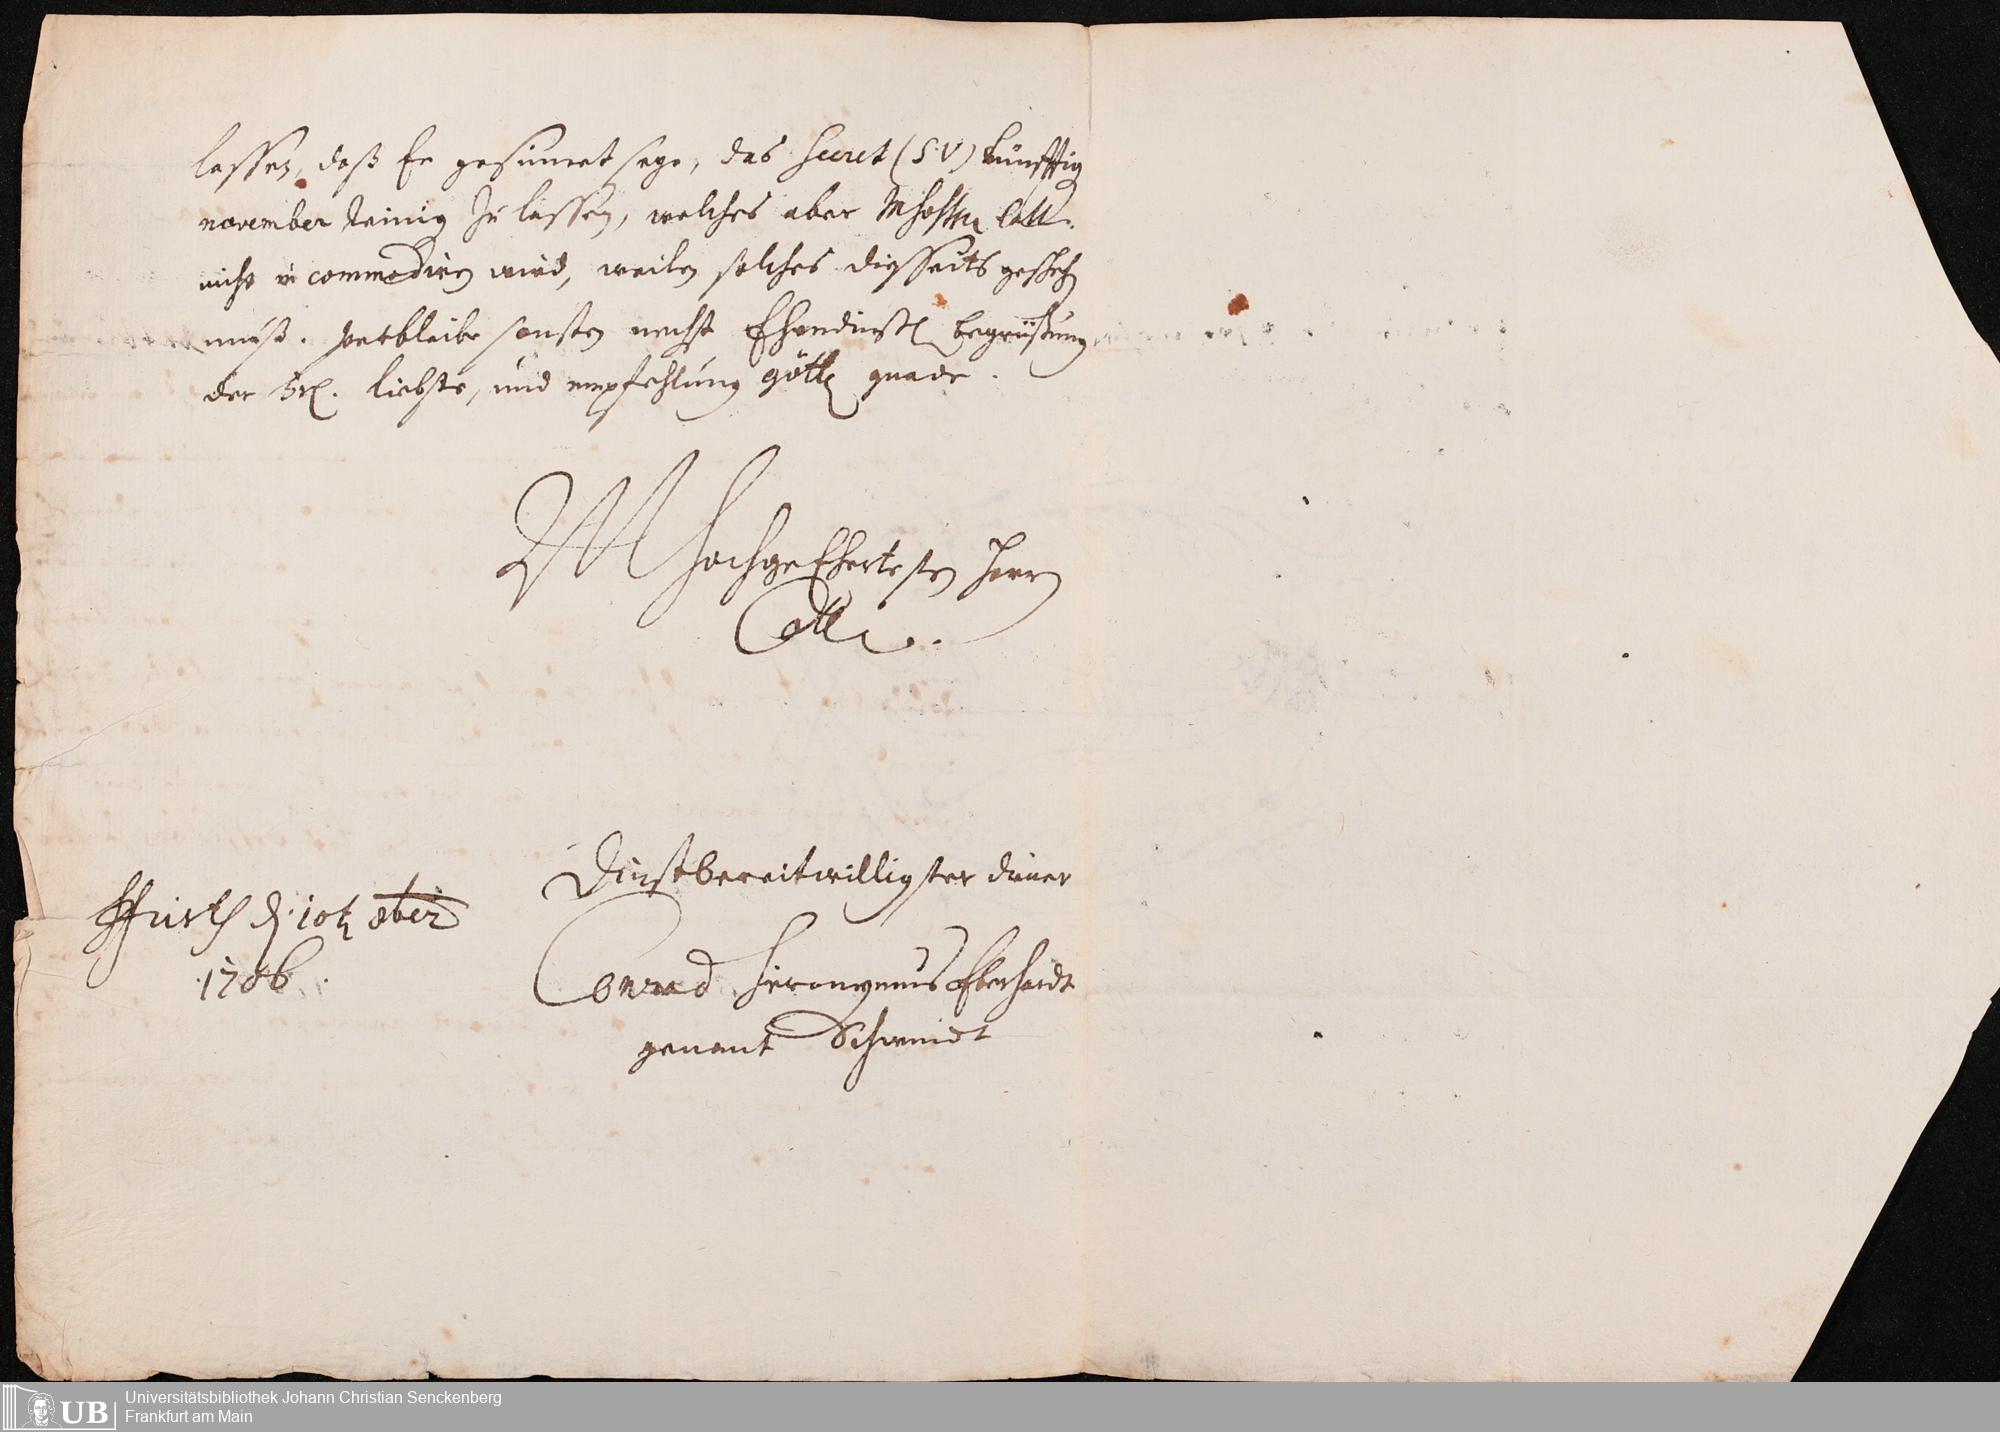 lassen, daß Er gesinnet seye, das Secret (S.V) künfftig
november reinig. zu lassen, welches aber
nicht incommodiren wird, weilen solches disseits gescheh
muß. verbleibe sonsten nechst Ehrendinstl. begrüßung
der Frl. liebste, und empfehlung göttl. gnade.
M hochgeEhertesten Herrn
Coll.
Dinstbereitwilligster diener
ffurth d. 10t. 8ber
1706.
Conrad Hieronymus Eberhardt
genant Schwindt
Universitätsbibliothek Johann Christian Senckenberg
Frankfurt am Main
UB